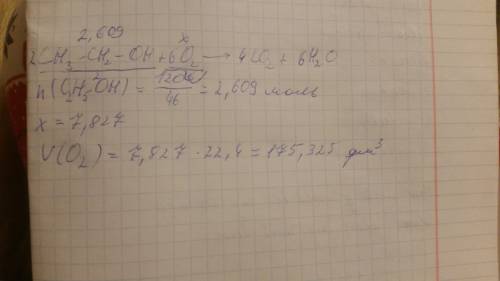 2,609 x
2CH₃-CH₂-OH + 6O₂ → 4CO₂ + 6H₂O
n(C₂H₅OH) = 120/46 = 2,609 моль
x = 7,827
V(O₂) = 7,827 · 22,4 = 175,325 дм³